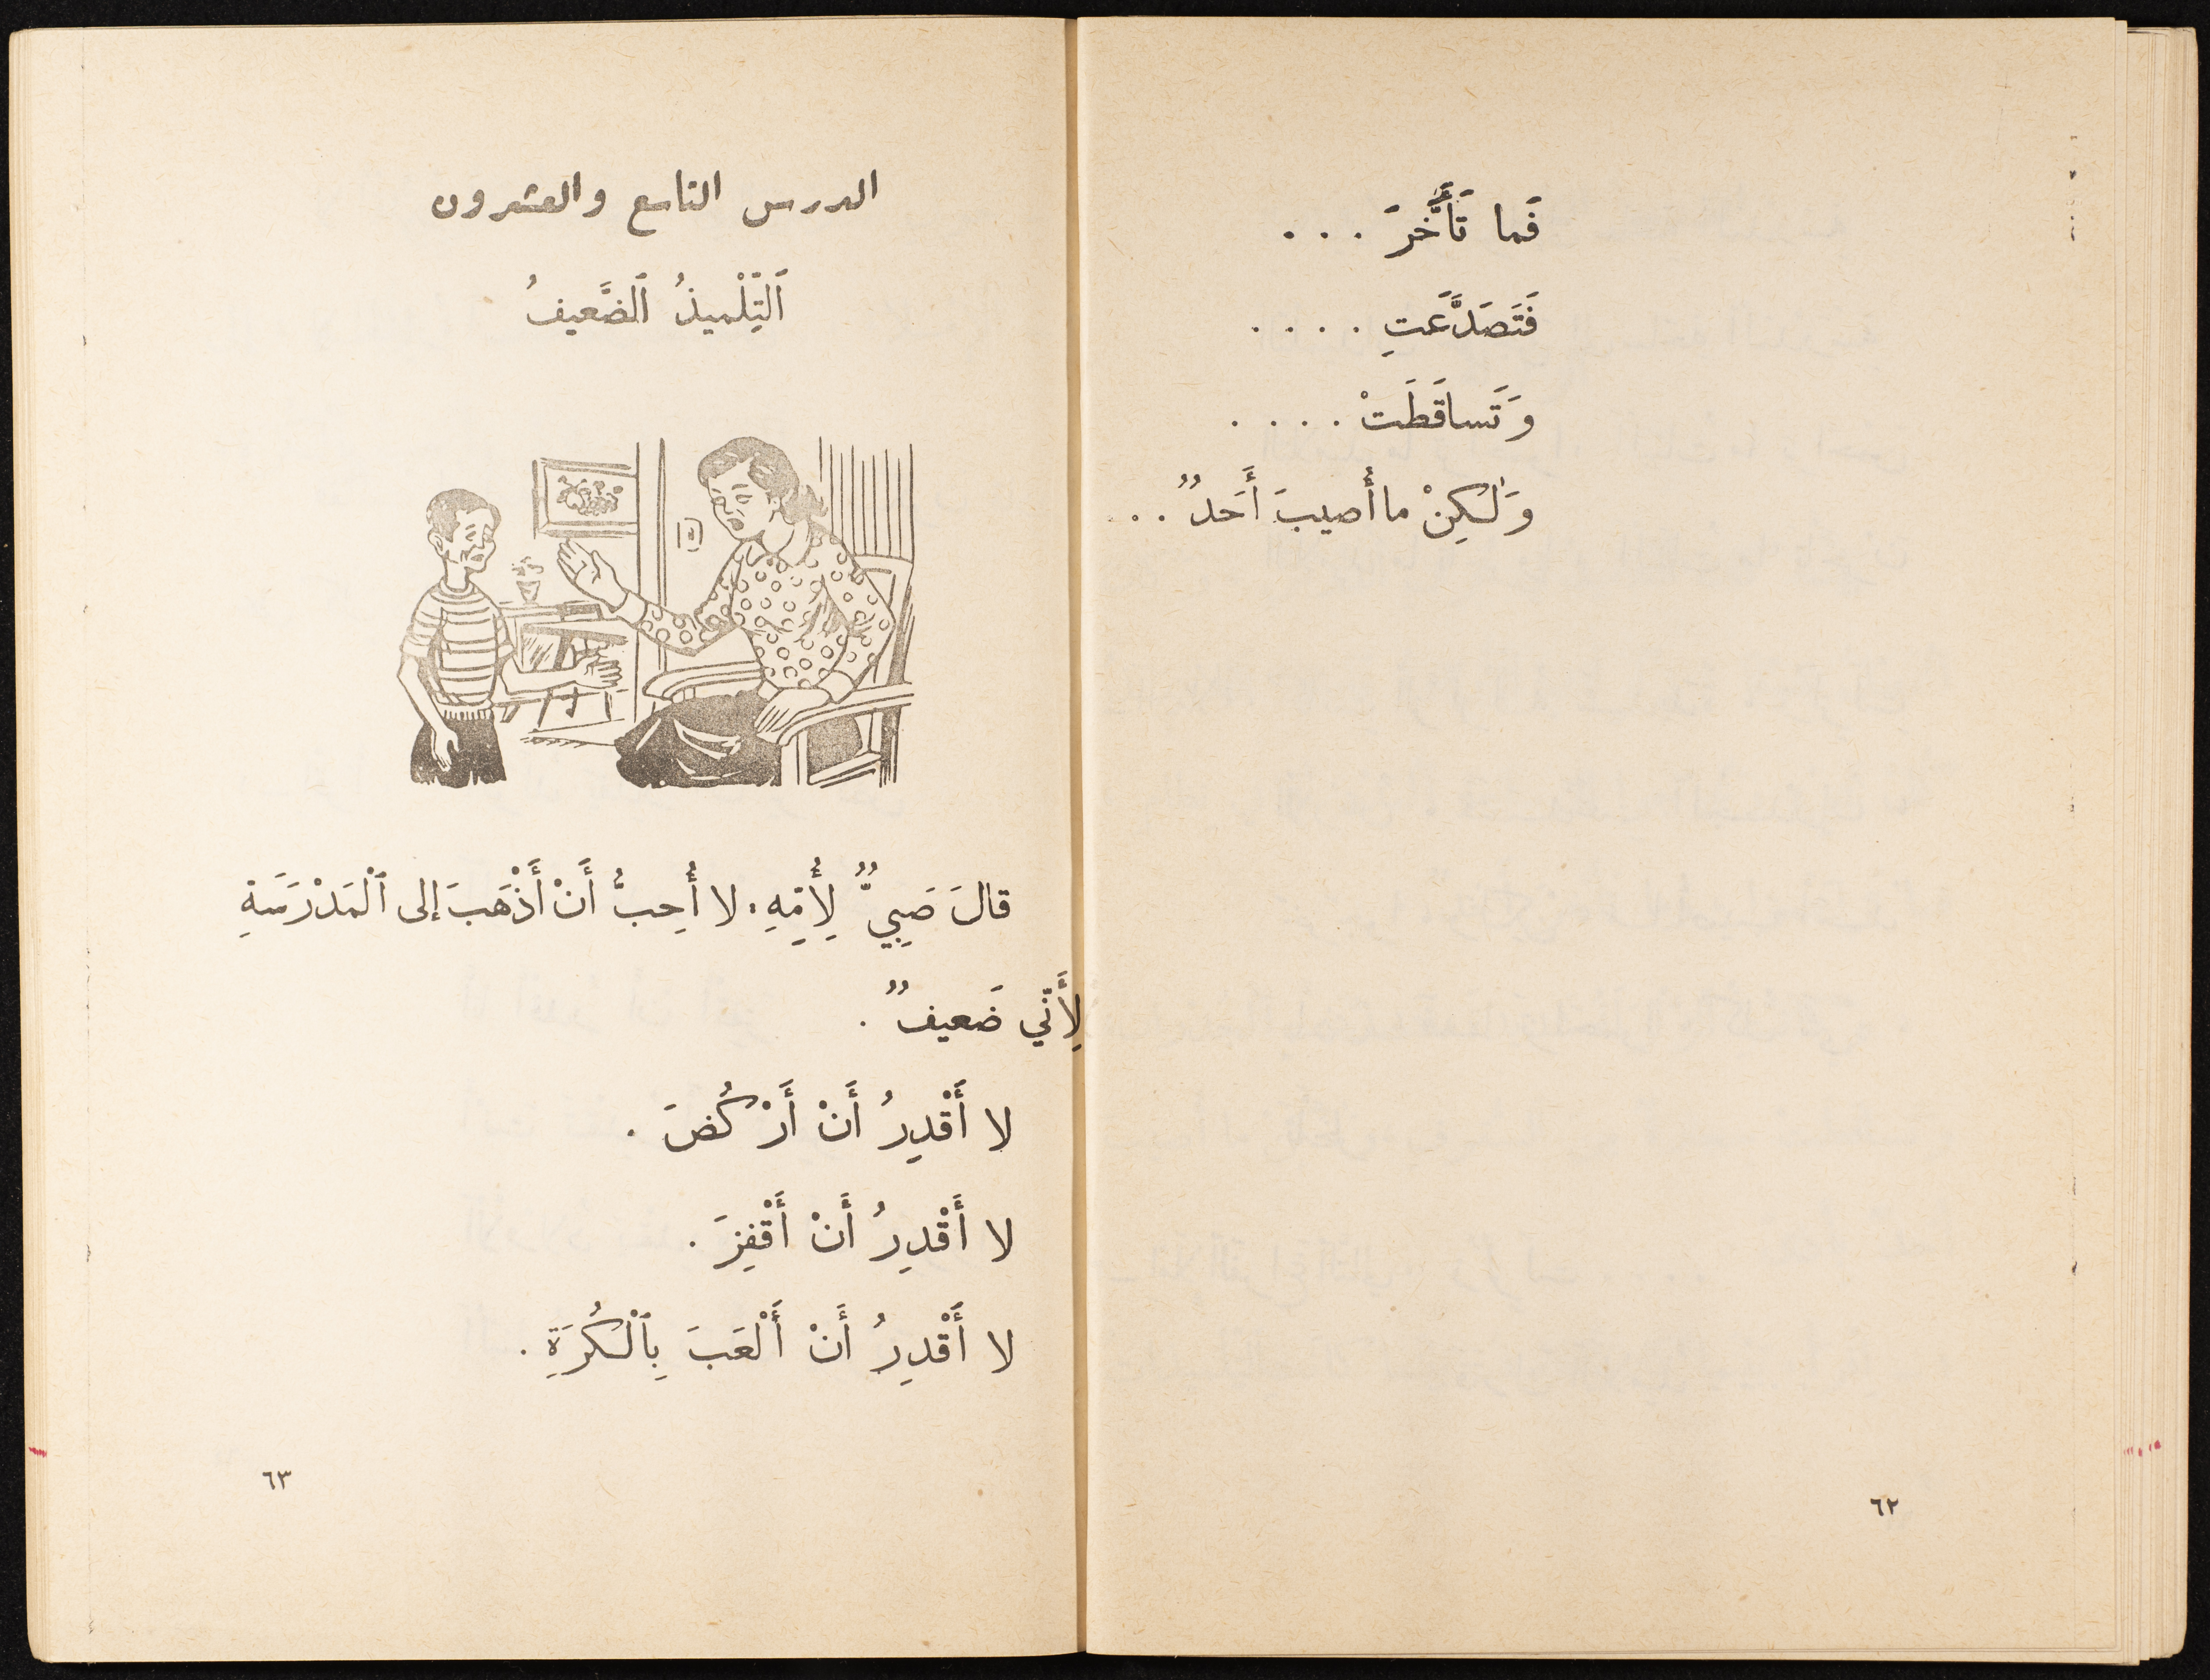 فَما تَأَخَّرَ . . .
فَتَصَدَّعَتِ . . . .
وَتَساقَطَتْ . . . .
وَلٰكِنْ ما أُصيبَ أَحَدٌ . .
٦٢
الدرس التاسع والعشرون
اَلتِّلْميذُ اَلضَّعيفُ
قالَ صَبِيٌّ لِأُمِّهِ: لا أُحِبُّ أَنْ أَذْهَبَ إلى ٱلْمَدْرَسَةِ
لِأَنّي ضَعيفٌ .
لا أَقْدِرُ أَنْ أَرْكُضَ .
لا أَقْدِرُ أَنْ أَقْفِزَ .
لا أَقْدِرُ أَنْ أَلْعَبَ بِٱلْكُرَةِ .
٦٣